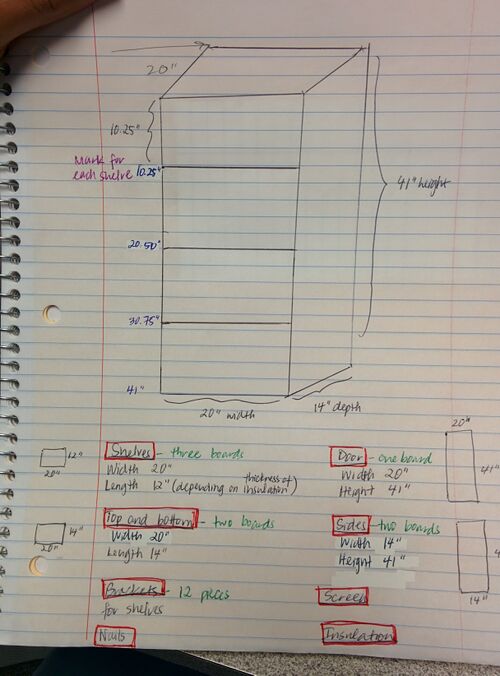 20"
10.25"
Mark for
each shelve
10.25"
41" height
20.50"
30.75"
41"
20" width
14" depth
Shelves - three boards
Width 20"
Length 12" (depending on thickness of insulation)
12"
20"
Door - one board
Width 20"
Height 41"
20"
41"
Top and bottom - two boards
Width 20"
Length 14"
14"
20"
Sides - two boards
Width 14"
Height 41"
4
14"
Brackets - 12 pieces
for shelves
Screen
Nails
Insulation